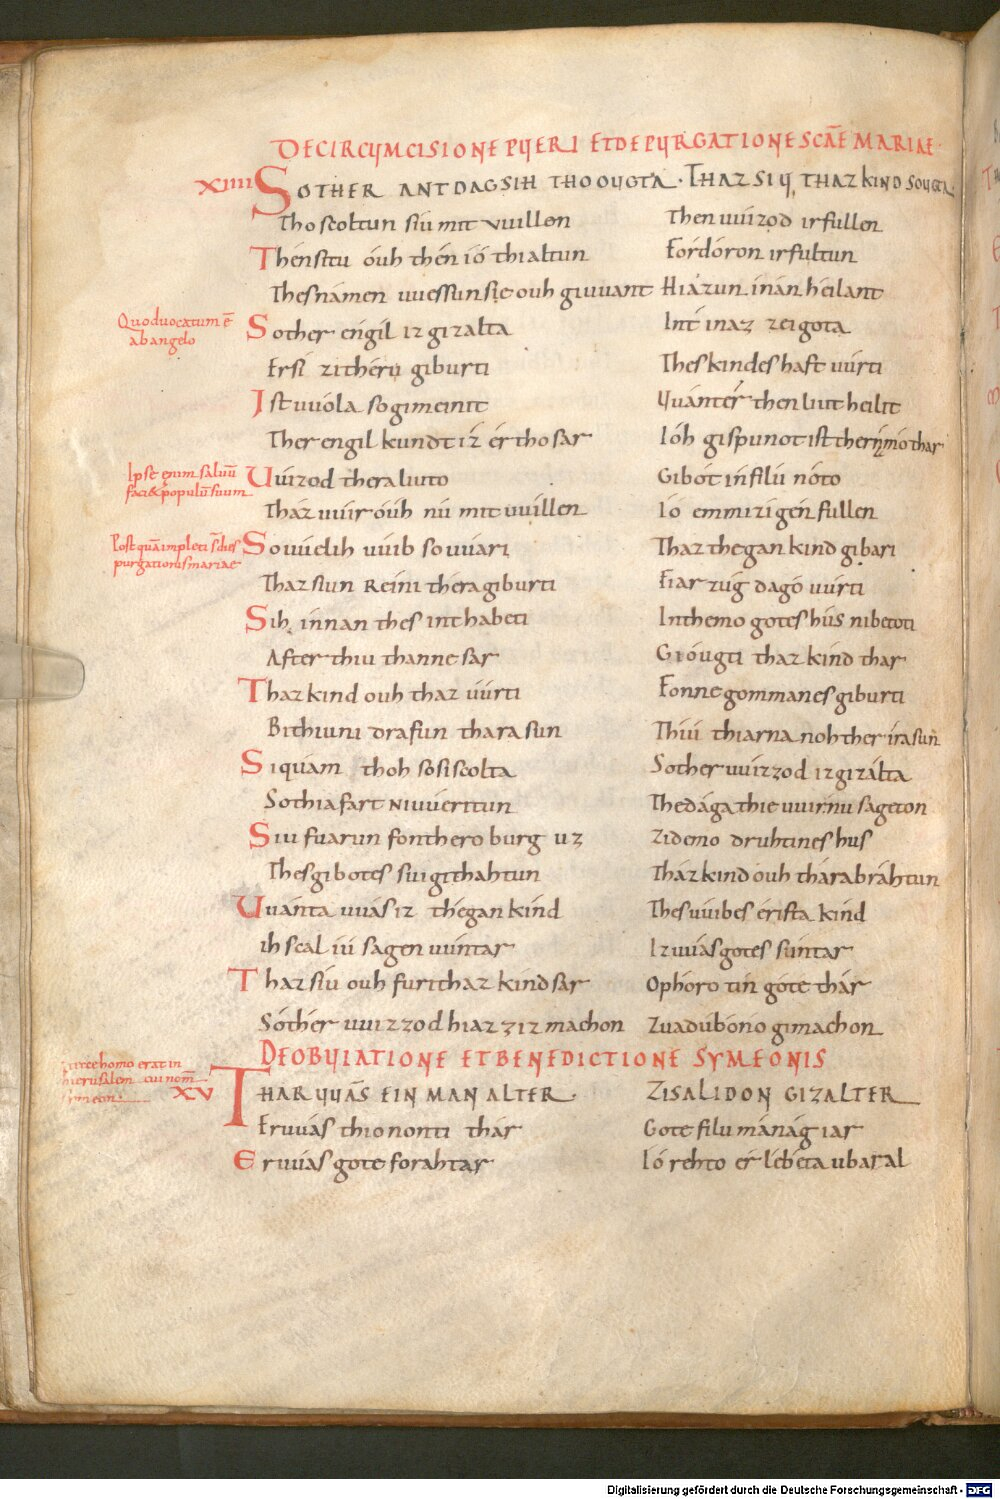 DECIRCUMCISIONE PUERI ET DE PURGATIONE SCAE MARIAE
XIIII SOTHER ANTDAG SIH THO OUGTA · THAZ SIU THAZ KIND SOUGTA
Tho scoltun siu mit vuillen Then vuizod irfullen
Thensitu óuh thén ió thialtun Fordóron irfultun
Thes námen vuessun sie ouh giuuant Hiazun ínán héilant
Quod uocatum ē
ab angelo
Sother engil iz gizalta Int inaz zeigota
Er si zitheru giburti Thes kindes haft vúrti
Ist vuóla so gimeinit Uuánter then liut heilit
Ther engil kundt iz ér tho sar Ióh gispunot ist ther námo thar
Ipse enim saluū
faciet populū suum
Uuizod thera liuto Gibót ínfilú nóto
Thaz vuir óuh nú mit vuillen Ió emmizigén fullen
Post quā impleti s̄ dies
purgationis mariae
Souuelih vuib so vuari Thaz thegankind gibari
Thaz siu in Reini thera giburti Fiarzúg dagó vúrti
Sih innan thes inthabeti In themo gotes hús nibetoti
After thiu thanne sar Gióugti thaz kind thar
Thaz kind ouh thaz vúrti Fonne gommanes giburti
Bithiu ni drafun thara sun Thiu thiarna noh ther íra sun
Si quám thoh so si scolta Sother vuizzod iz gizálta
So thia fart ni vuéritun The dága thie vuir nu sageton
Siu fuarun fon thero burg uz Zi demo druhtines hus
Thes gibotes siu githahtun Tház kind óuh thára bráhtun
Uuánta vuás iz thégankind Thes vuibes érista kind
ih scal iú sagen vuúntar Iz vuás gotes súntar
Thaz síu ouh furi thaz kind sar Ophóro tín góte thár
Sóthér vuizzod hiaz ziz machon Zua dúbóno gimachon
DE OBUIATIONE ET BENEDICTIONE SYMEONIS
homo erat in
hierusalem cui nom̄
simeon
XV THAR UUAS EIN MAN ALTER ZISALIDON GIZALTER
Er vuás thionónti thár Gote filu mánag iar
Er vuás gote forahtar Ió rehto ér lébeta ubar al
Digitalisierung gefördert durch die Deutsche Forschungsgemeinschaft - DFG